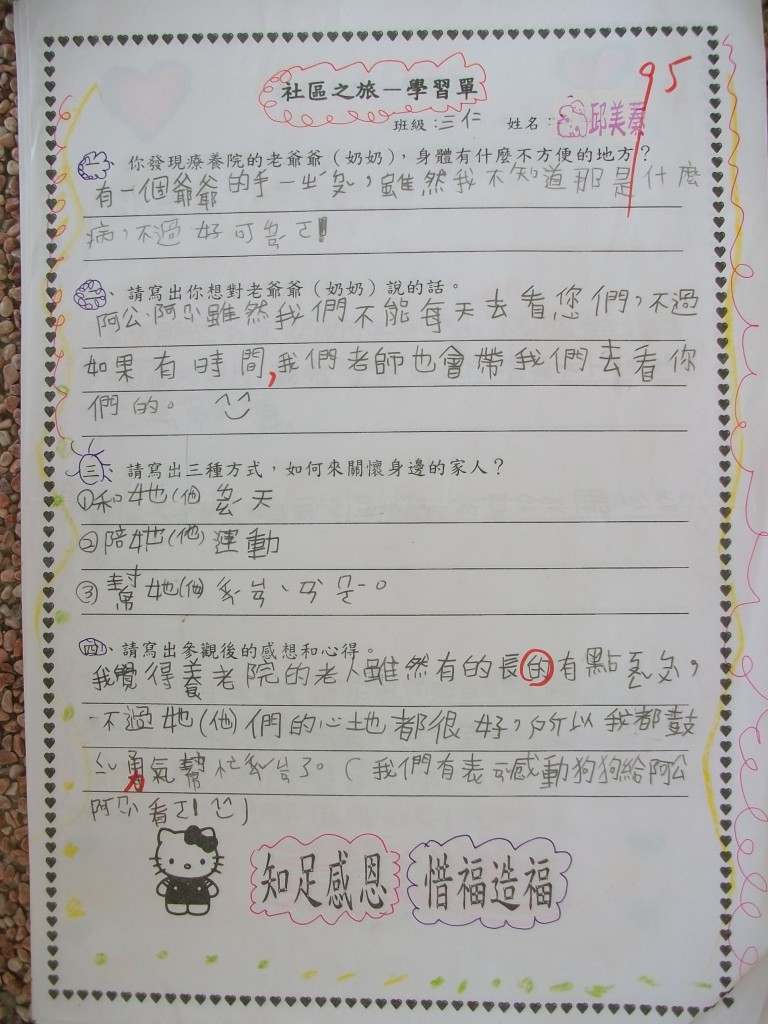 社區之旅－學習單
95
班級：三仁 姓名：邱美蓁
一、你發現療養院的老爺爺（奶奶），身體有什麼不方便的地方？
有一個爺爺的手一
雖然我不知道那是什麼
病，不過好可
二、請寫出你想對老爺爺（奶奶）說的話。
阿公、阿
雖然我們不能每天去看您們，不過
如果有時間，我們老師也會帶我們去看你
們的。
三、請寫出三種方式，如何來關懷身邊的家人？
①和她(他)
天
②陪她(他)運動
③幫她(他)
四、請寫出參觀後的感想和心得。
我覺得養老院的老人雖然有的長的有點
不過她(他)們的心地都很好，所以我都鼓
勇氣幫忙
了。(我們有表
感動狗狗給阿公
阿
看
知足感恩 惜福造福